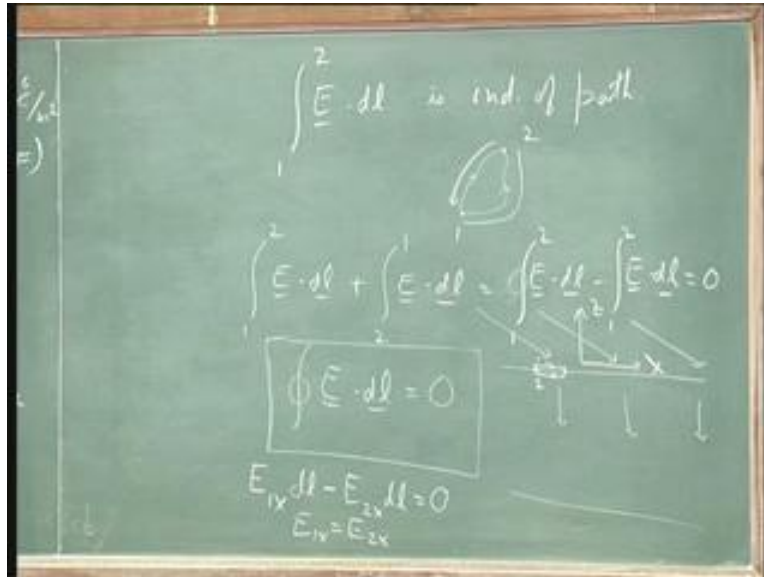 ∫₁² E · dl is ind. of path
1 2
∫₁² E · dl + ∫₂¹ E · dl = ∫₁² E · dl - ∫₁² E · dl = 0
z
x
∮ E · dl = 0
E₁ₓ dl - E₂ₓ dl = 0
E₁ₓ = E₂ₓ